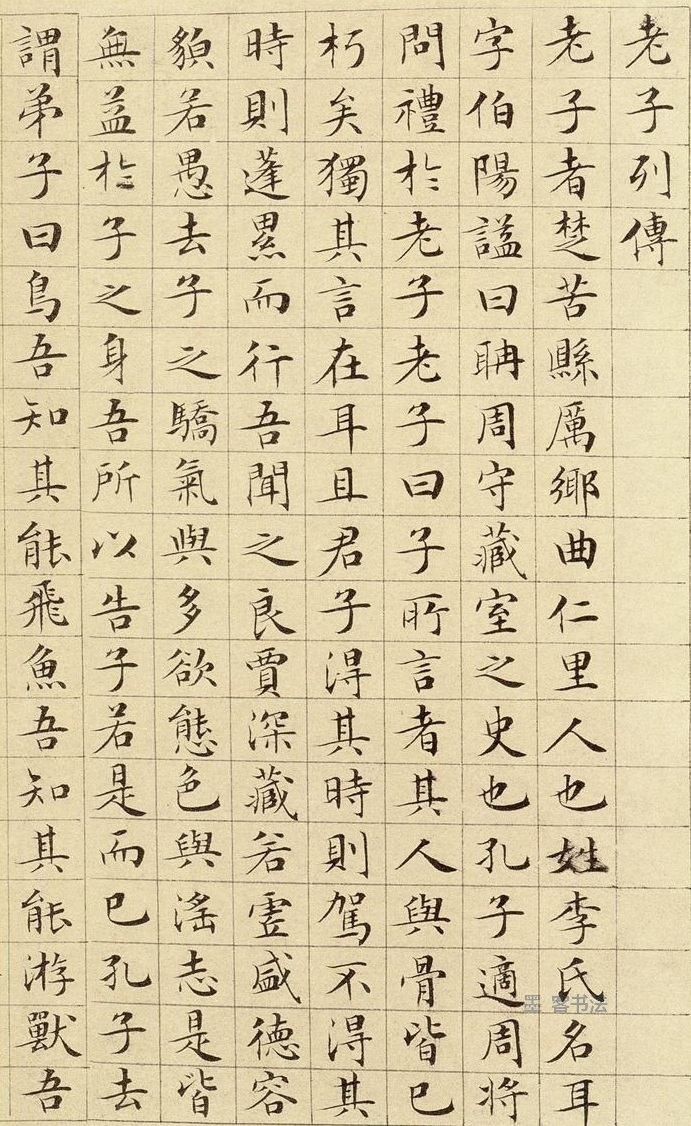 老子列傳
老子者楚苦縣厲鄉曲仁里人也姓李氏名耳
字伯陽謚曰聃周守藏室之史也孔子適周將
問禮於老子老子曰子所言者其人與骨皆已
朽矣獨其言在耳且君子得其時則駕不得其
時則蓬累而行吾聞之良賈深藏若虛盛德容
貌若愚去子之驕氣與多欲態色與淫志是皆
無益於子之身吾所以告子若是而已孔子去
謂弟子曰鳥吾知其能飛魚吾知其能游獸吾
墨客书法